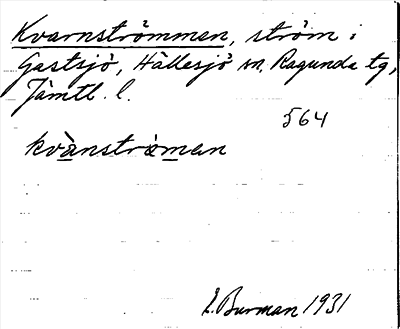 Kvarnströmmen, ström i
Gastsjö, Hällesjö sn, Ragunda tg,
Jämtl. l.
564
kvànstrǝman
E. Burman 1931